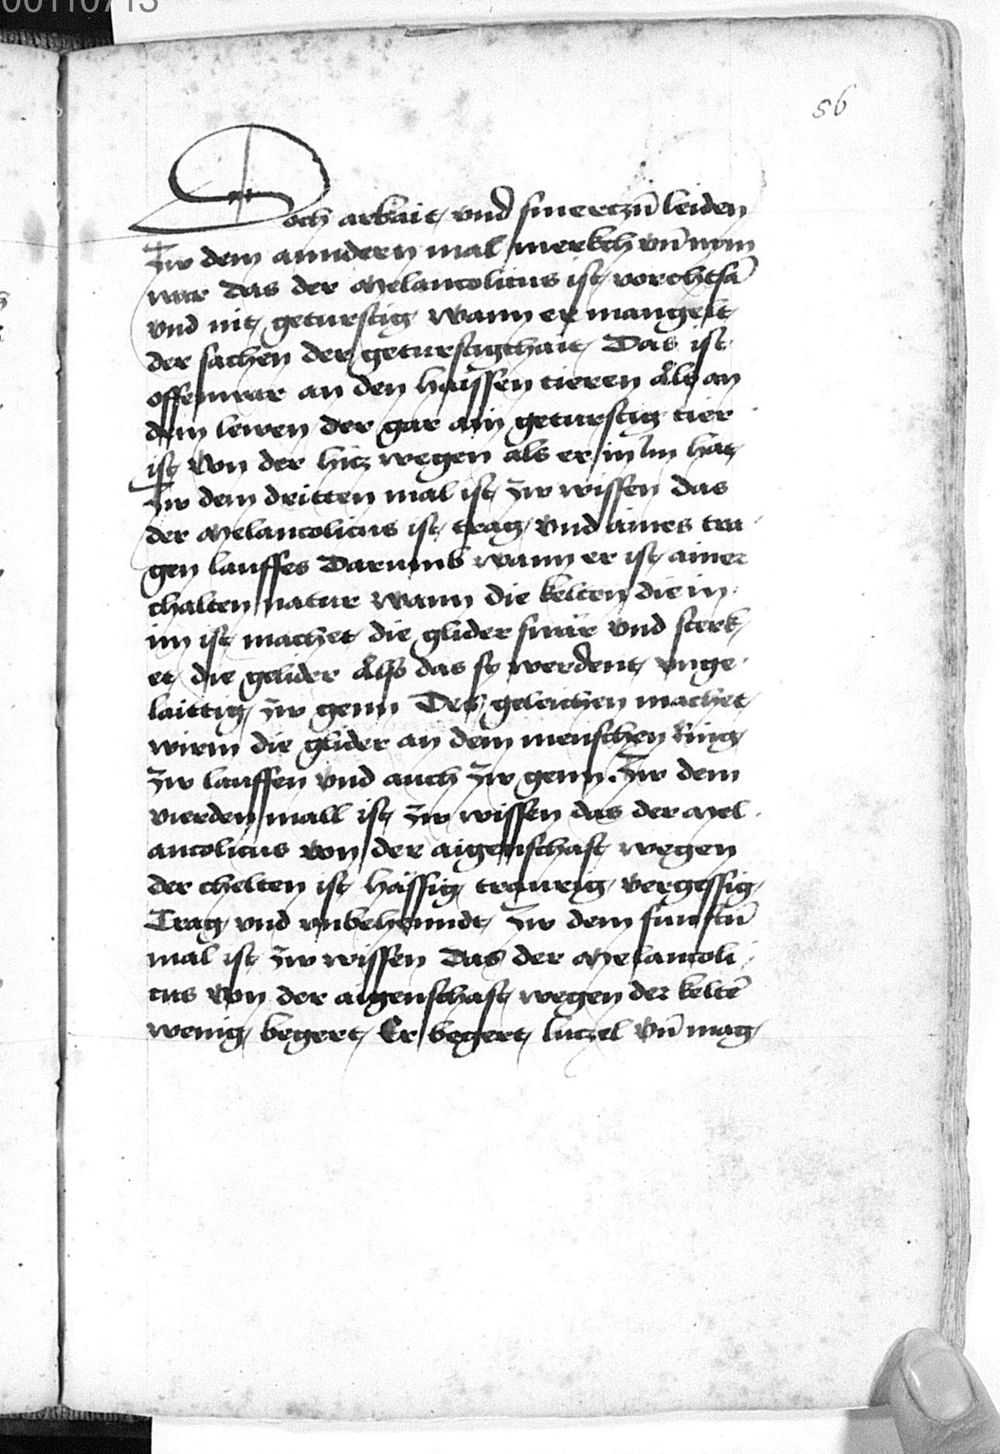 00110713
56
Doch arbait vnd smerczn̄ leiden
Zw dem anndern mal merkch vn̄ nym
war das der Melancolicus ist vorchtsā
vnd nit geturstig wann er mangelt
der sachen der geturstigchait Das ist
offennwar an den haissen tieren Als an
dem lewen der gar ain geturstig tier
ist von der hicz wegen als er in im hat
Zw dem dritten mal ist zw wissen das
der Melancolicus ist trag vnd aines tra
gen lauffes Darumb wann er ist ainer
chalten natur wann die kelten die in
im ist machet die glider swär vnd sterk
et die gelider Also das sy werdent vnge
laittig zw genn Des geleichen machet
wirm die glider an dem menschen Ring
zw lauffen vnd auch zw genn. Zw dem
vierden mall ist zw wissen das der Mel
ancolicus von der aigenschaft wegen
der chelten ist hässig traurig vergessig
Trag vnd vnbehenndt Zw dem funftn̄
mal ist zw wissen Das der Melancoli
cus von der aigenschaft wegen der keltē
wenig begert Er begert luczel vn̄ mag